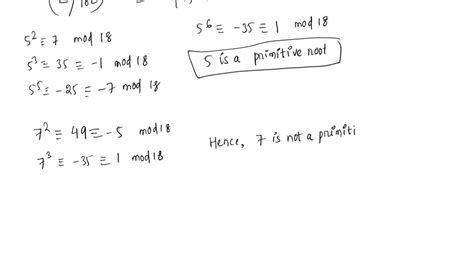 5² ≡ 7 mod 18
5³ ≡ 35 ≡ -1 mod 18
5⁵ ≡ -25 ≡ -7 mod 18
5⁶ ≡ -35 ≡ 1 mod 18
5 is a primitive root
7² ≡ 49 ≡ -5 mod 18
7³ ≡ -35 ≡ 1 mod 18
Hence, 7 is not a primiti